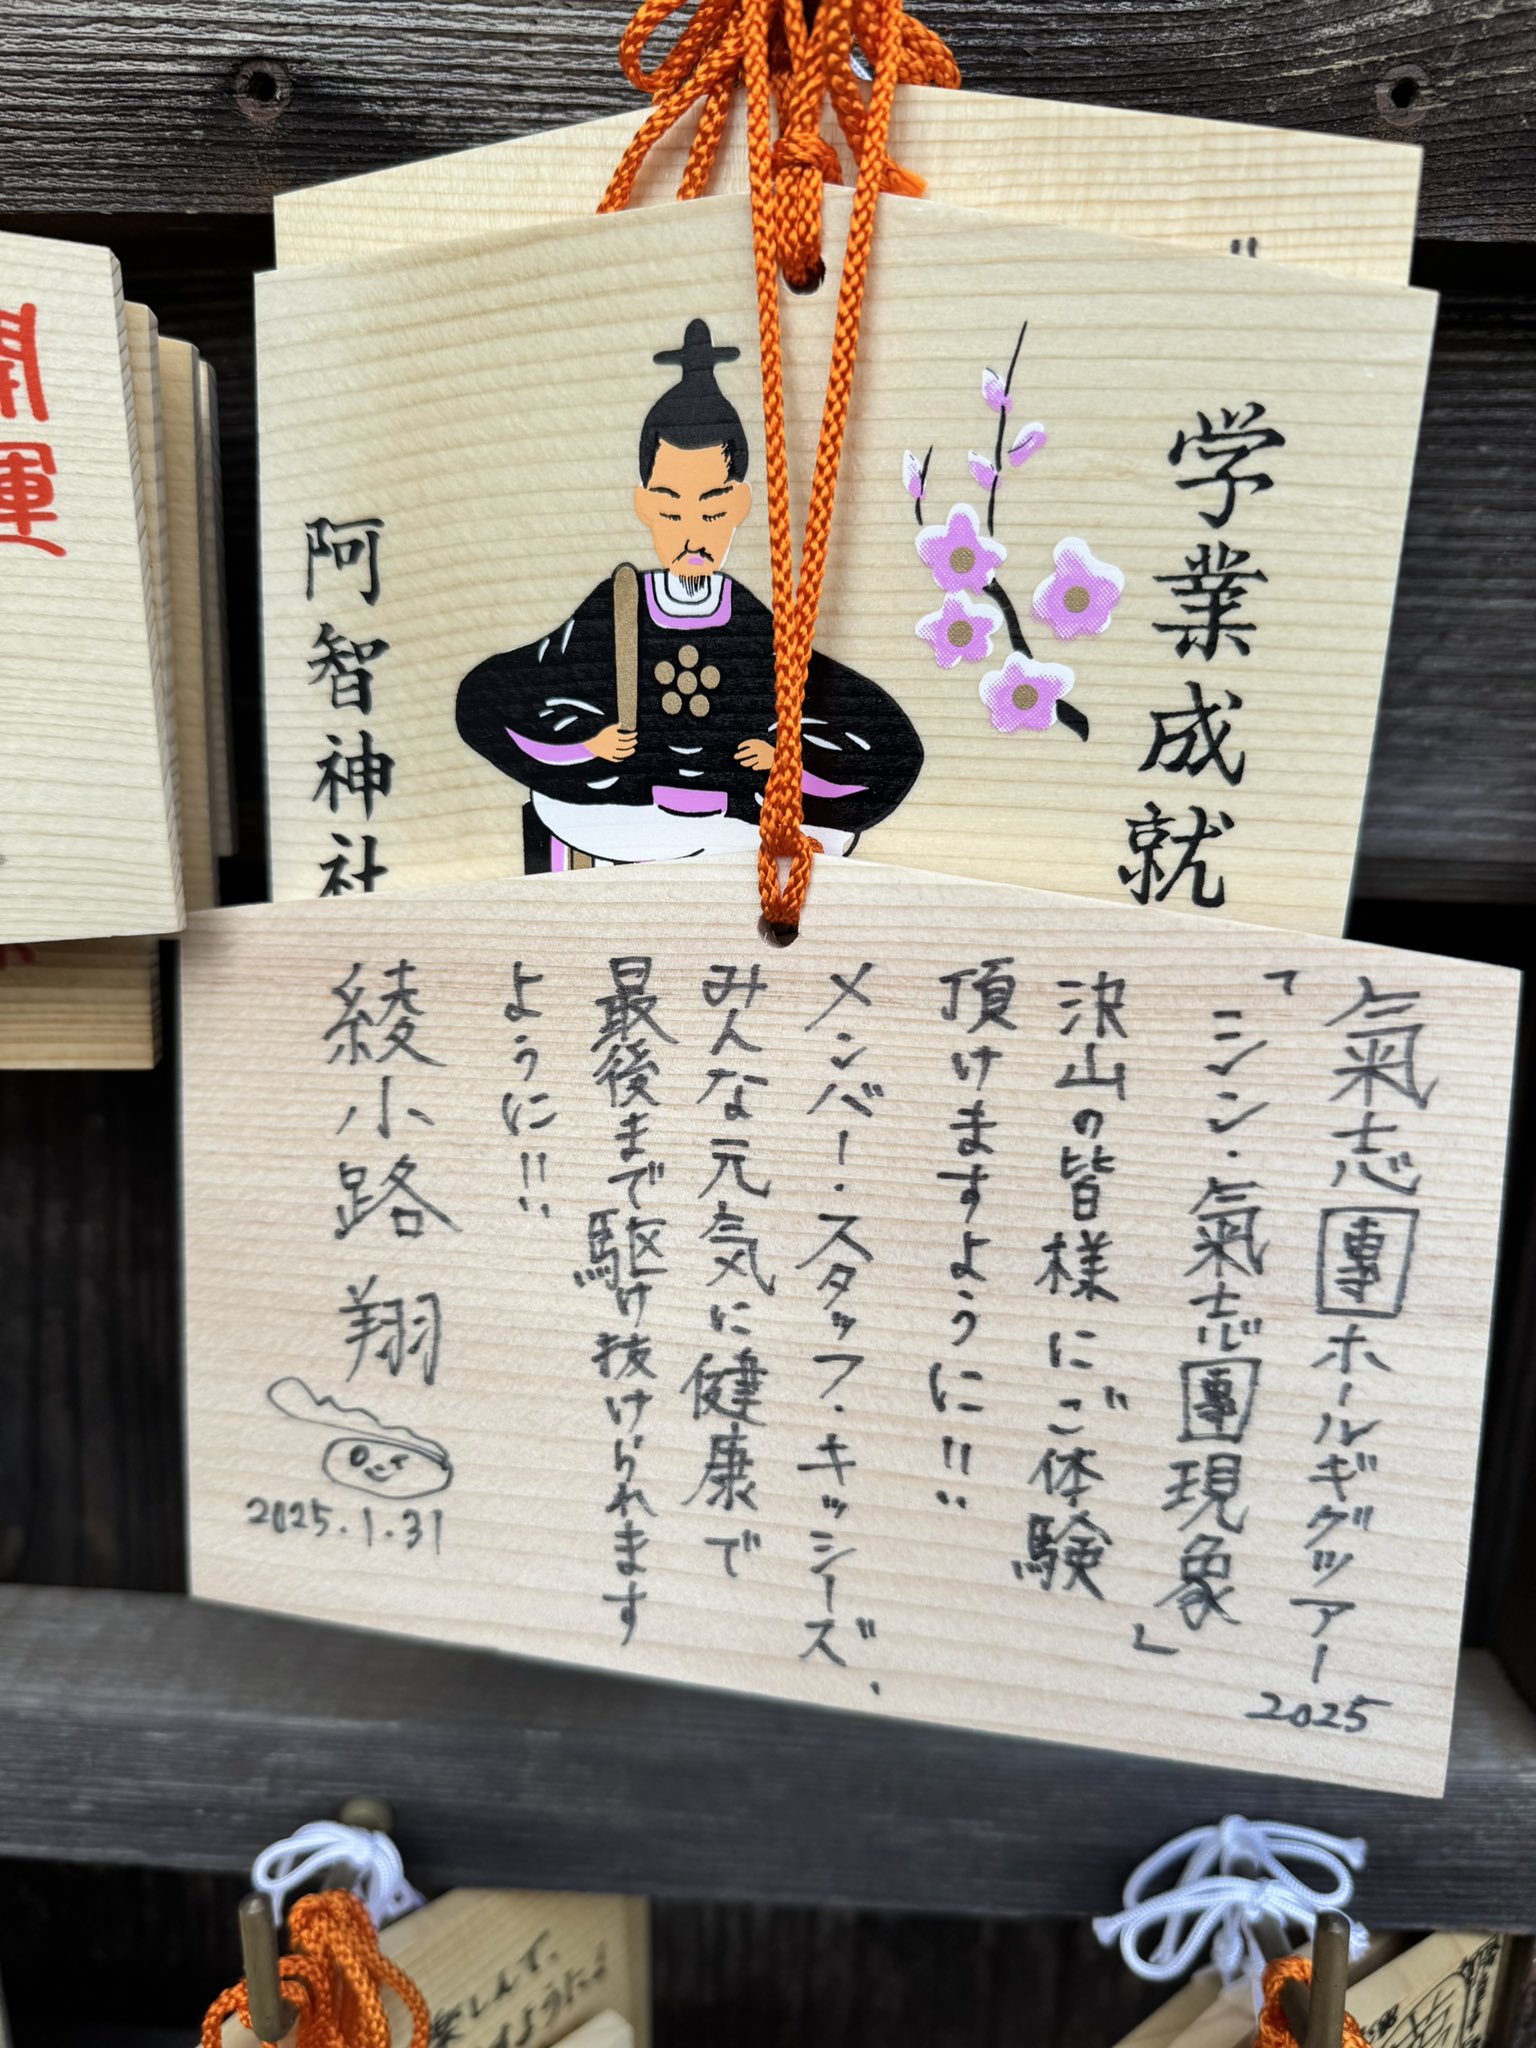 学業成就
阿智神社
開運
氣志團ホールギグツアー2025
「シン・氣志團現象」
沢山の皆様にご体験
頂けますように!!
メンバー・スタッフ・キッシーズ、
みんな元気に健康で
最後まで駆け抜けられます
ように!!
綾小路 翔
2025.1.31